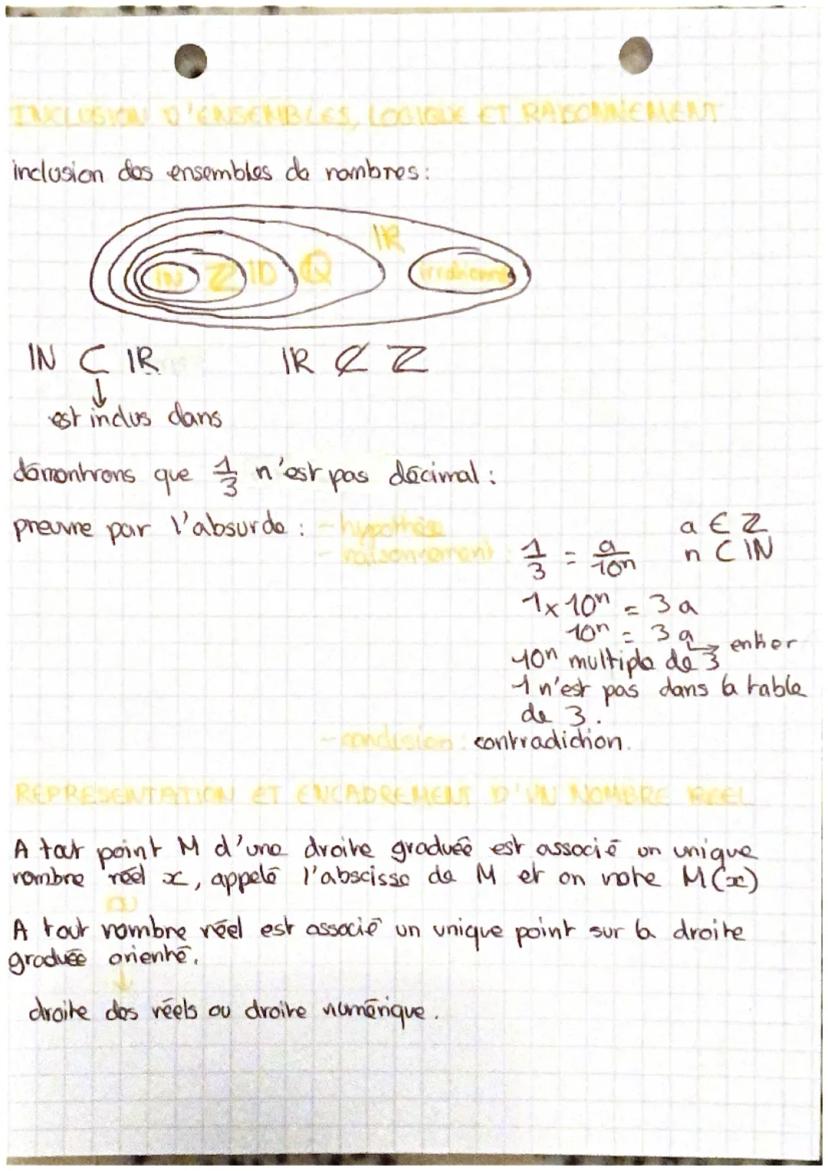 INCLUSION D'ENSEMBLES, LOGIQUE ET RAISONNEMENT
inclusion des ensembles de nombres :
IN Z ID Q IR irrationnels
IN ⊂ IR IR ⊄ Z
↓
est inclus dans
démontrons que 1/3 n'est pas décimal :
preuvre par l'absurde : - hypothèse
a ∈ Z
- raisonnement : 1/3 = a/10ⁿ n ⊂ IN
1 x 10ⁿ = 3a
10ⁿ = 3a → entier
10ⁿ multiple de 3
1 n'est pas dans la table
de 3.
- conclusion : contradiction.
REPRESENTATION ET ENCADREMENT D'UN NOMBRE REEL
A tout point M d'une droite graduée est associé un unique
nombre réel x, appelé l'abscisse de M et on note M(x)
ou
A tout nombre réel est associé un unique point sur la droite
graduée orienté.
↓
droite des réels ou droite numérique.